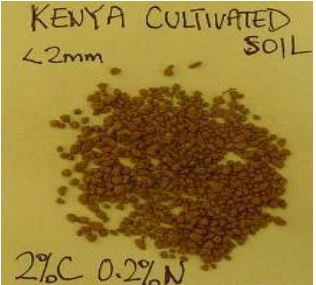 KENYA CULTIVATED
SOIL
<2mm
2%C 0.2%N